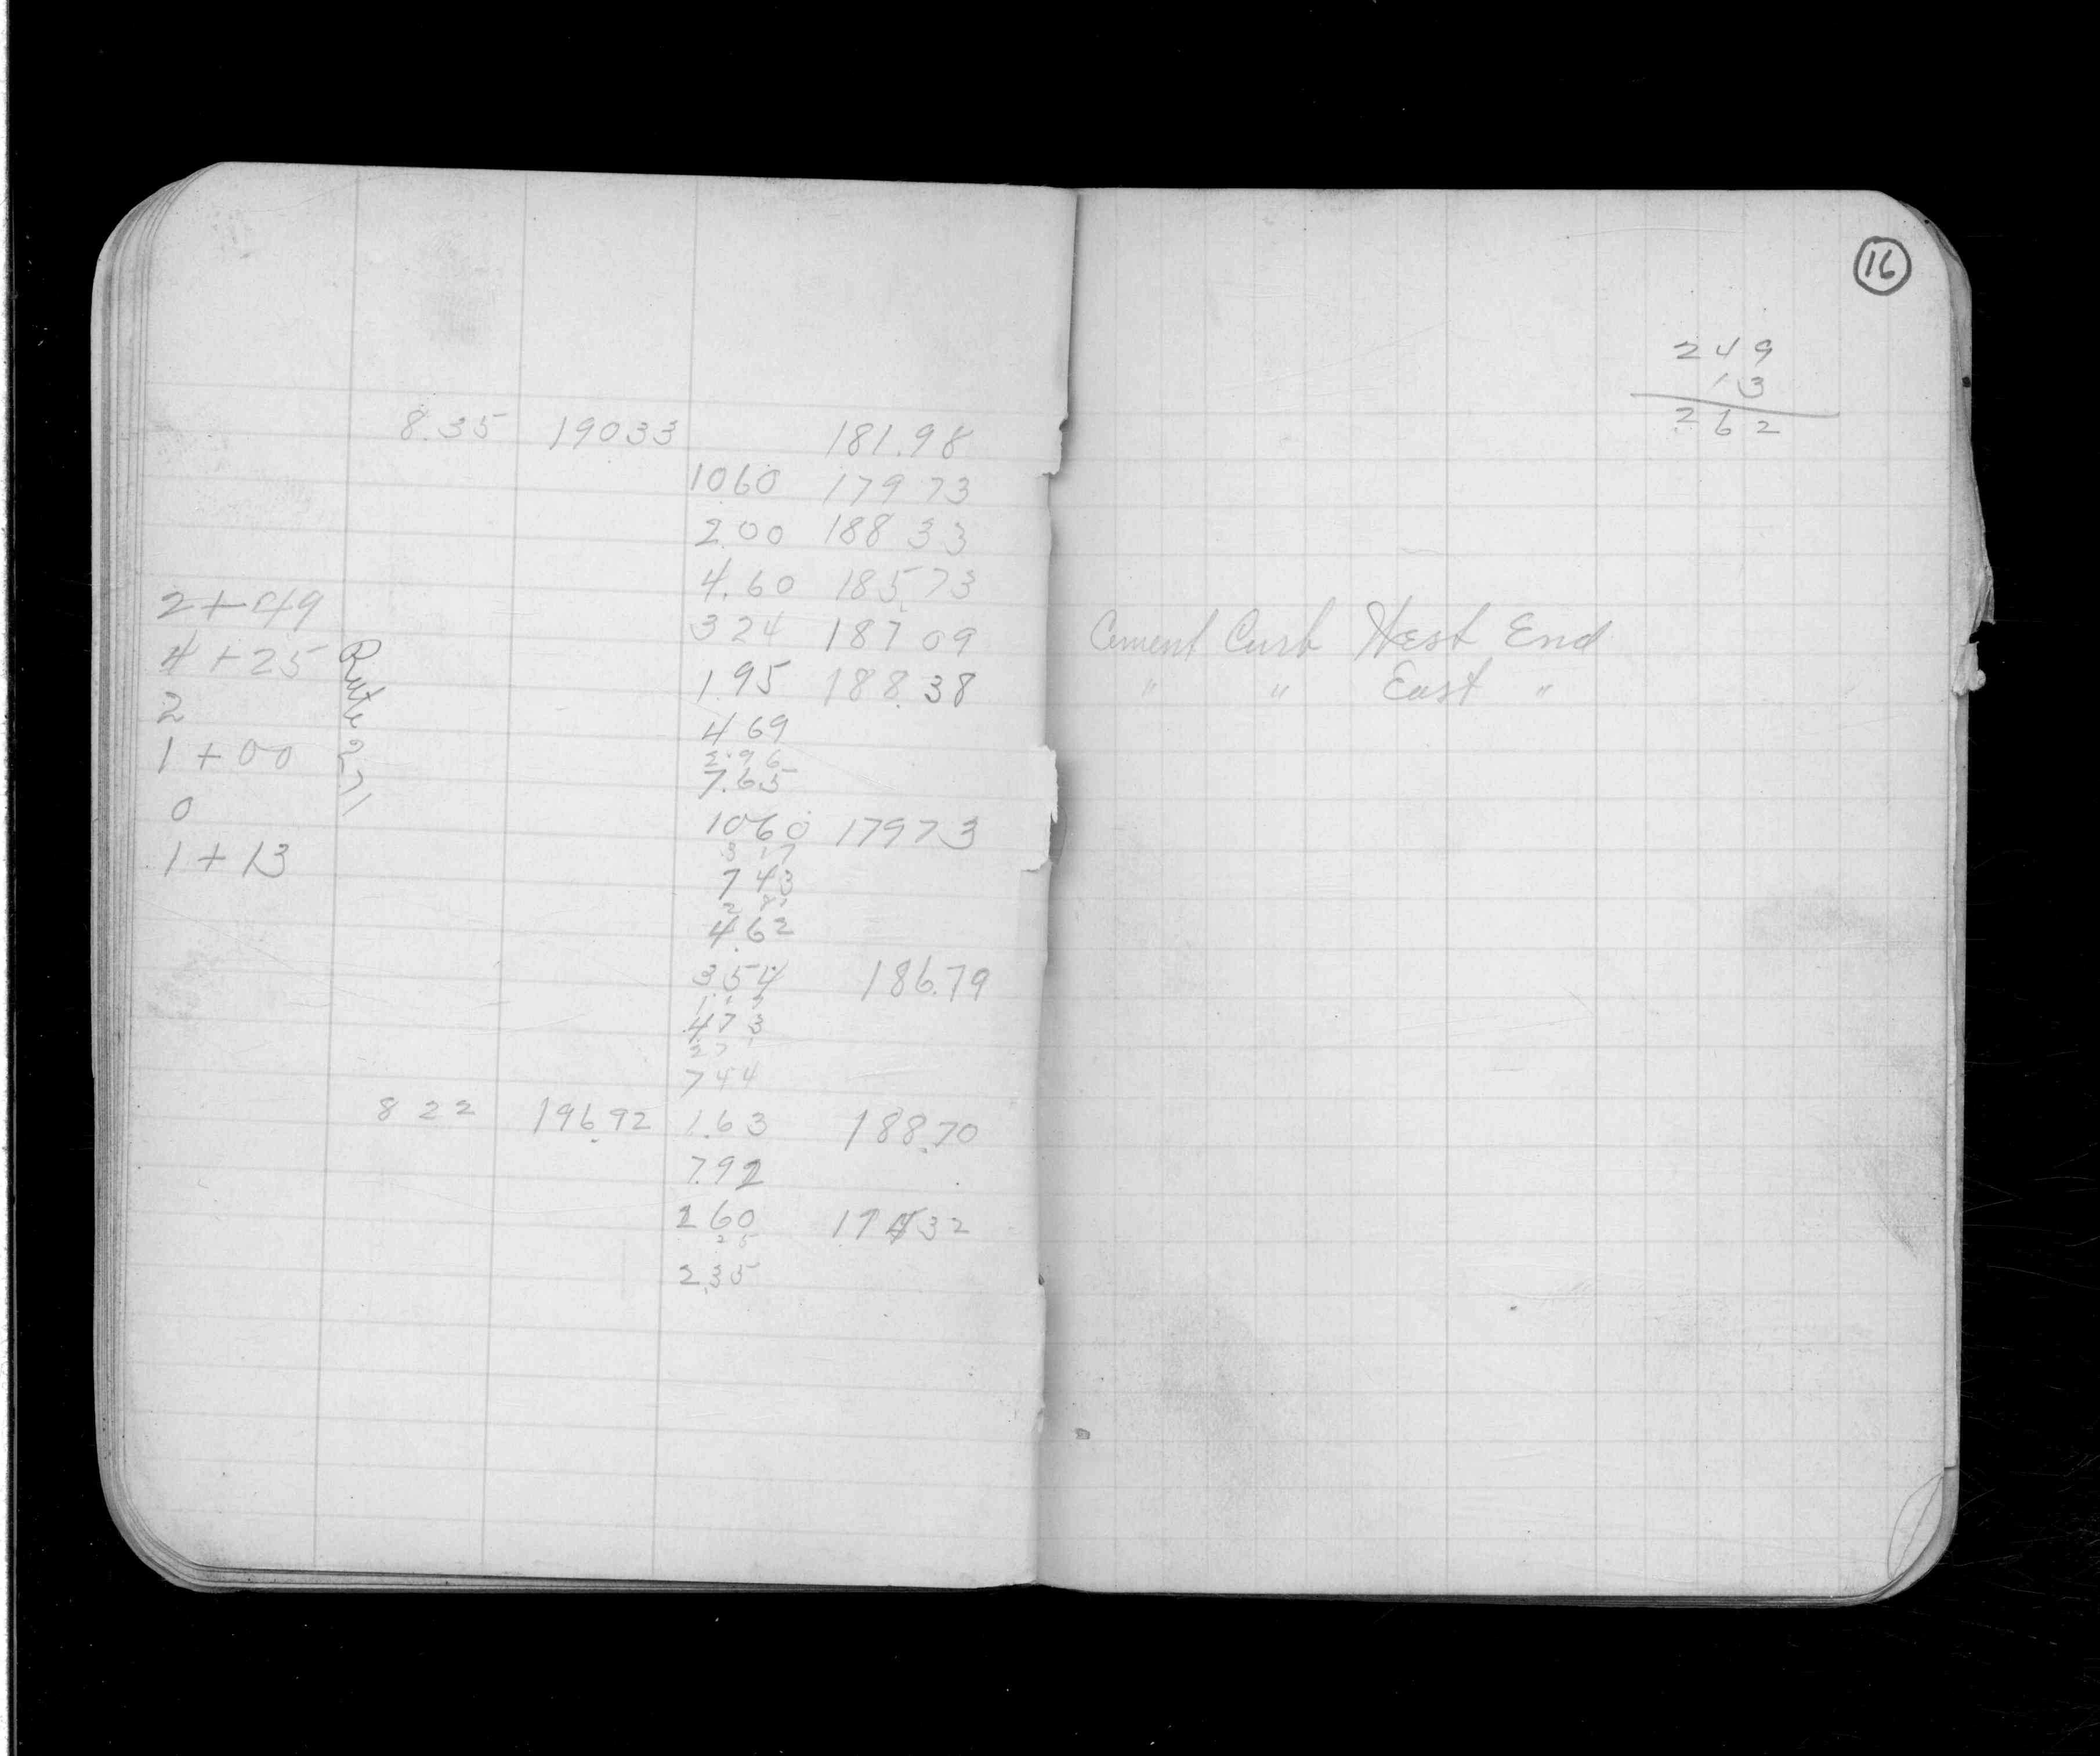 8.35 19033 181.98
1060 179 73
2.00 188 33
4.60 185.73
2+49 324 187 09
4+25 1.95 188.38
Rate 271
2 4 69
2.96
1+00 7.65
0 1060 179 73
3 17
1+13 7 43
2 8
4.62
3.54 186.79
4 7 3
2 7 1
7 4 4
8 22 196.92 1.63 188.70
7.92
260 32
25
2.35
16
249
13
262
Cement Curb West End
" " East "